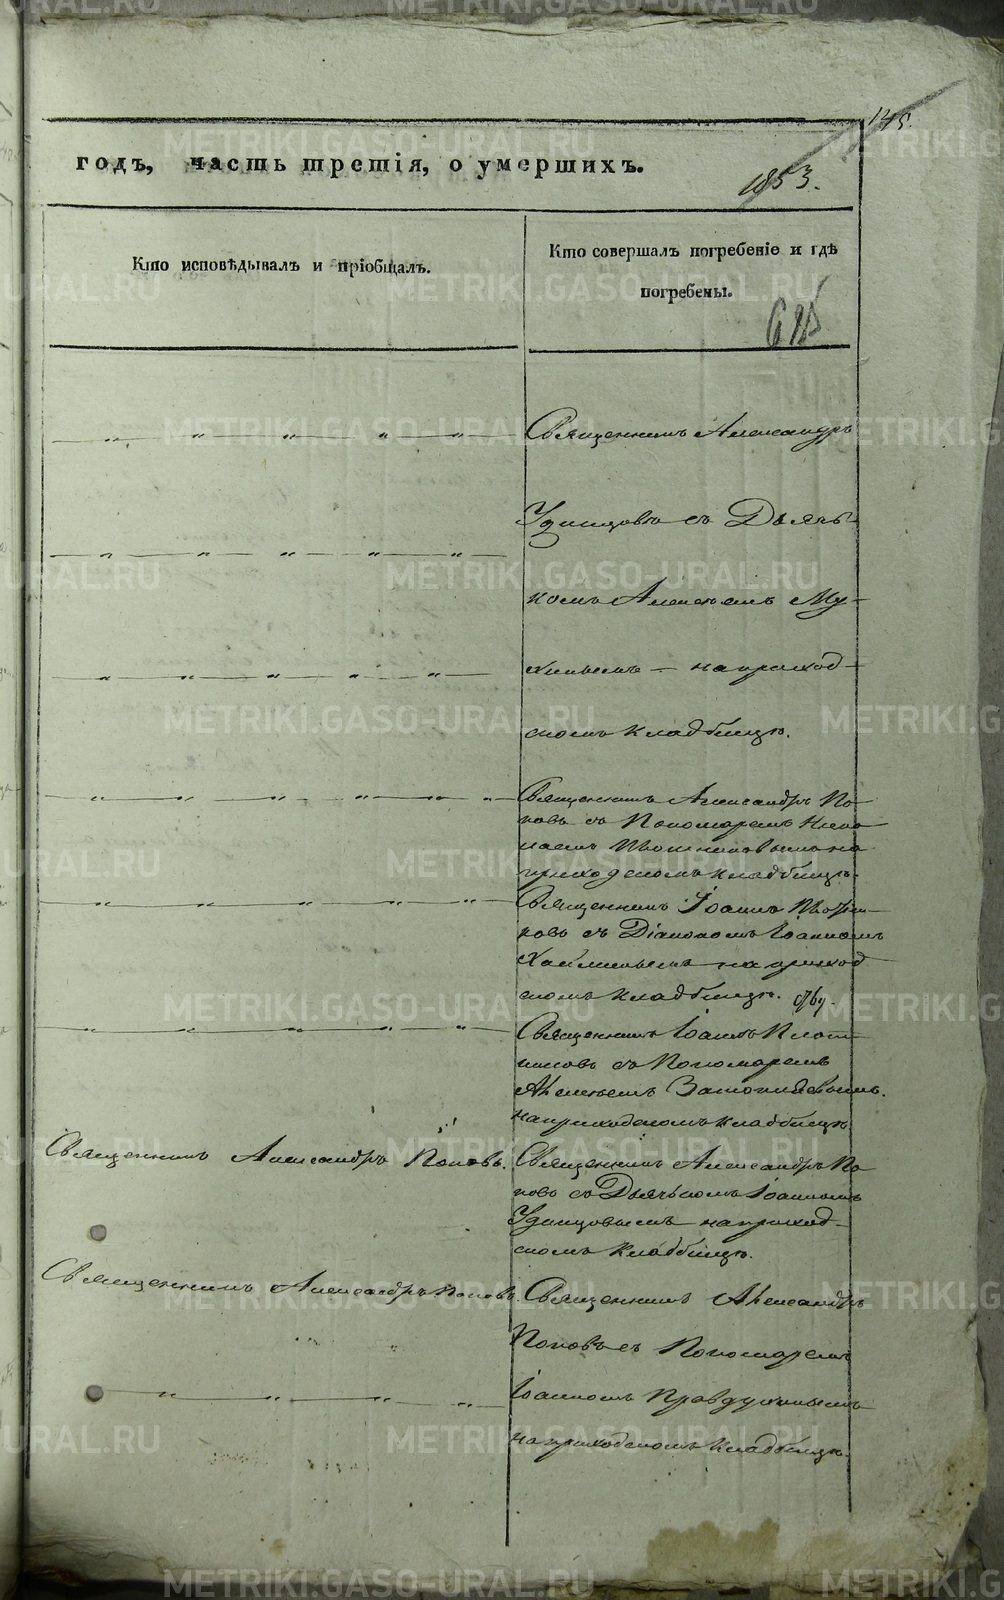 145.
годъ, часть третія, о умершихъ.
1853.
Кто исповѣдывалъ и пріобщалъ.
Кто совершалъ погребеніе и гдѣ
погребены.
Священникъ Александръ
Удинцовъ съ Дьяч-
комъ Алексѣемъ Му-
хинымъ — на приход-
скомъ кладбищѣ.
Священникъ Александръ По-
повъ съ Пономаремъ Нико-
лаемъ на
приходскомъ кладбищѣ.
Священникъ Іоаннъ Плотни-
ковъ съ Діакономъ Іоанномъ
на приход
скомъ кладбищѣ.
Священникъ Іоаннъ Плот-
никовъ съ Пономаремъ
Алексѣемъ
на приходскомъ кладбищѣ.
Священникъ Александръ Поповъ.
Священникъ Александръ По-
повъ съ Дьячкомъ Іоанномъ
Удинцовымъ на приход-
скомъ кладбищѣ.
Священникъ Александръ Поповъ.
Священникъ Александръ
Поповъ съ Пономаремъ
Іоанномъ Правдухинымъ
на приходскомъ кладбищѣ.
METRIKI.GASO-URAL.RU